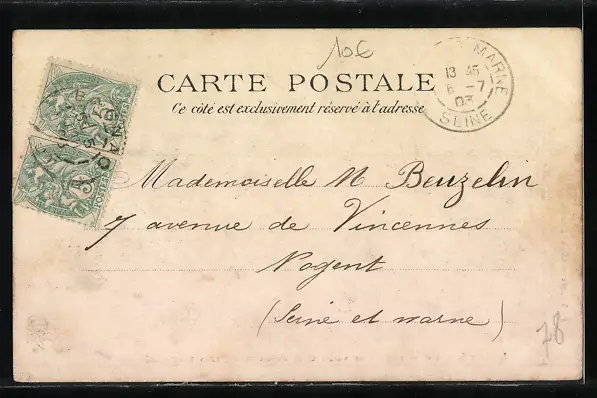 10€
CARTE POSTALE
Ce côté est exclusivement réservé à l'adresse
MARNE
13 45
6 -7
03
SEINE
5
POSTES
Mademoiselle N Beuzelin
7 avenue de Vincennes
Nogent
(Seine et marne)
78